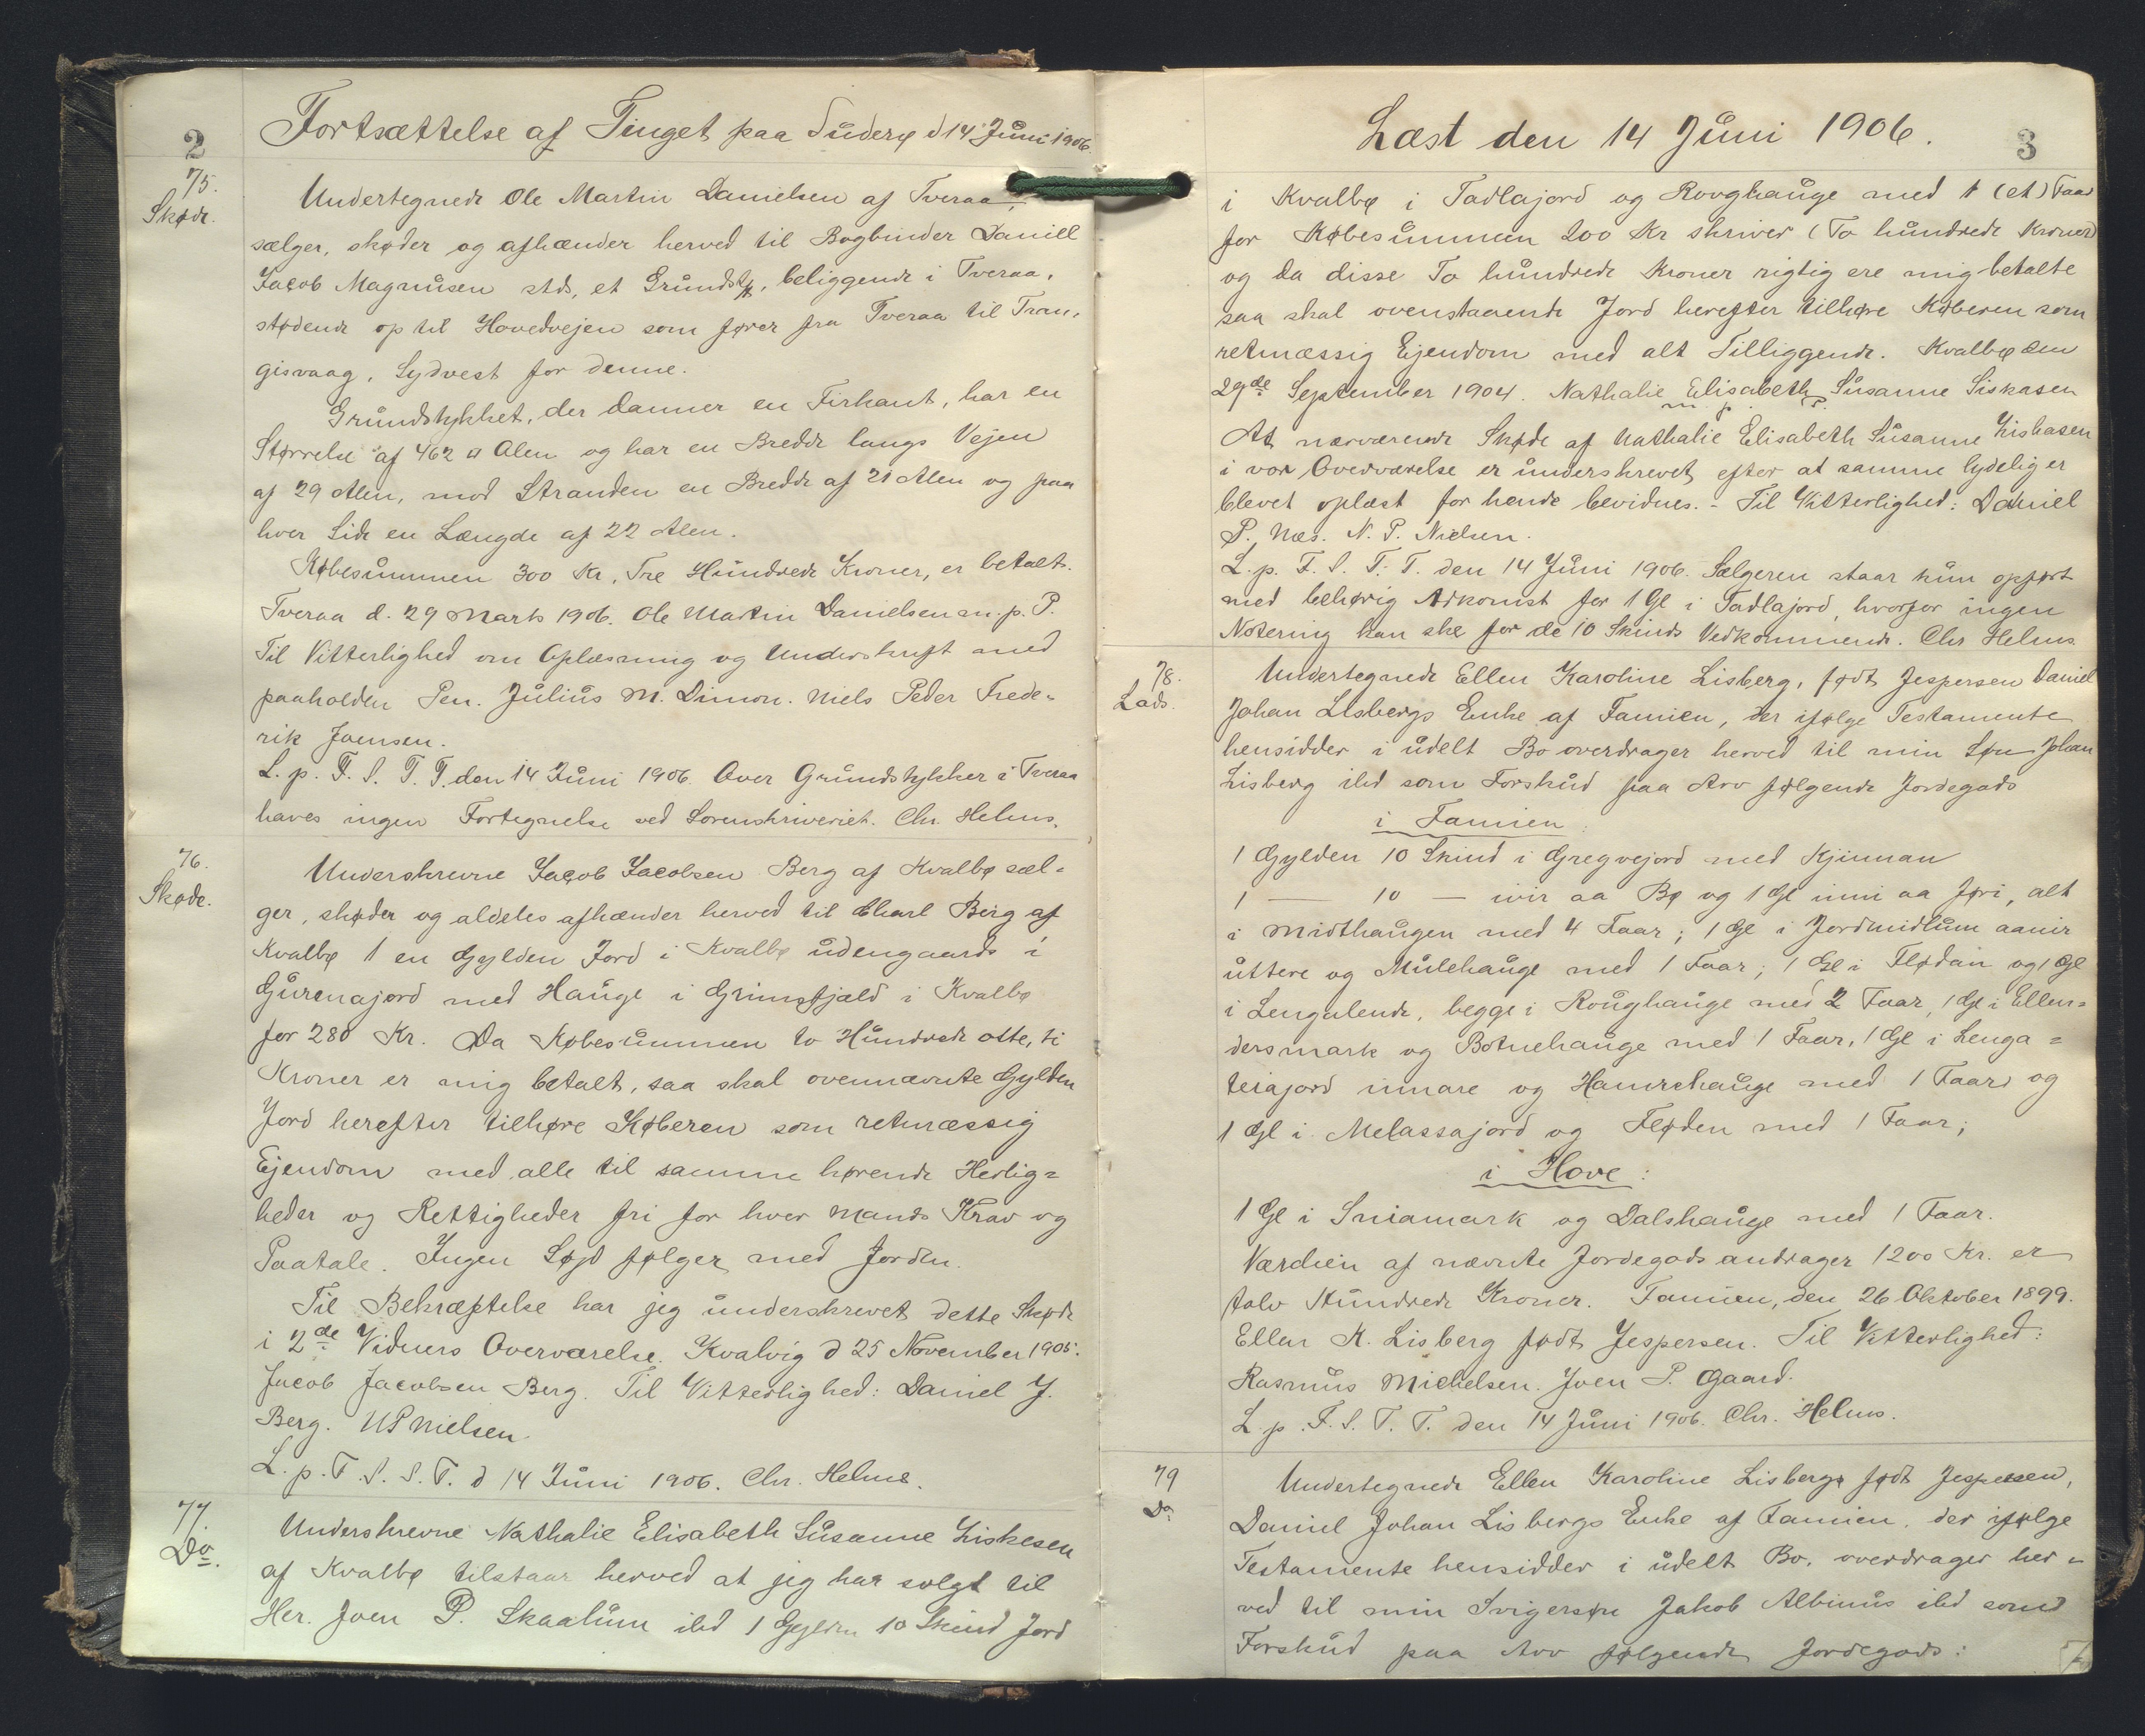 2
Fortsættelse af Tinget paa Suderø d 14 Juni 1906.
75.
Skøde.
Undertegnede Ole Martin Danielsen af Tveraa,
sælger, skøder og afhænder herved til Bogbinder Daniel
Jacob Magnusen stds, et Grundstk, beliggende i Tveraa,
stødende op til Hovedvejen som fører fra Tveraa til Tran-
gisvaag, Sydvest for denne.
Grundstykket, der danner en Firkant, har en
Størrelse af 462 □ Alen og har en Bredde langs Vejen
af 29 Alen, mod Stranden en Bredde af 21 Alen og paa
hver Side en Længde af 22 Alen.
Købesummen 300 Kr, Tre Hundrede Kroner, er betalt.
Tveraa d. 29 Marts 1906. Ole Martin Danielsen m. p. P.
Til Vitterlighed om Oplæsning og Underskrift med
paaholden Pen. Julius M. Dimon. Niels Peder Frede-
rik Joensen.
L. p. F. S. T. T. den 14 Juni 1906. Over Grundstykker i Tveraa
haves ingen Fortegnelse ved Sorenskriveriet. Chr. Helms.
76.
Skøde.
Underskrevne Jacob Jacobsen Berg af Kvalbø sæl-
ger, skøder og aldeles afhænder herved til Charl Berg af
Kvalbø 1 en Gylden Jord i Kvalbø udengaards i
Gurenajord med Hauge i Grimsfjæld i Kvalbø
for 280 Kr. Da Købesummen to Hundrede otte, ti
Kroner er mig betalt, saa skal ovennævnte Gylden
Jord herefter tilhøre Køberen som retmæssig
Ejendom med alle til samme hørende Herlig=
heder og Rettigheder fri for hver Mands Krav og
Paatale. Ingen Søjd følger med Jorden.
Til Bekræftelse har jeg underskrevet dette Skøde
i 2de Vidners Overværelse. Kvalvig d 25 November 1905.
Jacob Jacobsen Berg. Til Vitterlighed: Daniel J.
Berg. N P Nielsen.
L. p. F. S. S. T. d 14 Juni 1906. Chr. Helms.
77.
Do.
Underskrevne Nathalie Elisabeth Susanne Liskesen
af Kvalbø tilstaar herved at jeg har solgt til
Her. Joen P. Skaalum ibd 1 Gylden 10 Skind Jord
Læst den 14 Juni 1906.
3
i Kvalbø i Tadlajord og Rovghauge med 1 (et) Faar
for Købesummen 200 Kr skriver (To hundrede Kroner)
og da disse To hundrede Kroner rigtig ere mig betalte
saa skal ovenstaaende Jord herefter tilhøre Køberen som
retmæssig Ejendom med alt Tilliggende. Kvalbø den
29de September 1904. Nathalie Elisabeth Susanne Siskasen
m. p. P.
At nærværende Skøde af Nathalie Elisabeth Susanne Liskasen
i vor Overværelse er underskrevet efter at samme lydelig er
blevet oplæst for hende bevidnes. - Til Vitterlighed: Daniel
P. Næs. N. P. Nielsen.
L. p. F. S. T. T. den 14 Juni 1906. Sælgeren staar kun opført
med behørig Adkomst for 1 Gl i Tadlajord, hvorfor ingen
Notering kan ske for de 10 Skinds Vedkommende. Chr Helms.
78.
Lads.
Undertegnede Ellen Karoline Lisberg, født Jespersen Daniel
Johan Lisbergs Enke af Famien, der ifølge Testamente
hensidder i udelt Bo overdrager herved til min Søn Johan
Lisberg ibd som Forskud paa Arv følgende Jordegods
i Famien:
1 Gylden 10 Skind i Gregvejord med Kjinnan
1 — 10 — ivir aa Bø og 1 Gl inni aa Jøri, alt
i Midthaugen med 4 Faar; 1 Gl i Jordmidlum aanir
uttere og Mulehauge med 1 Faar; 1 Gl i Flødan og 1 Gl
i Lengalende, begge i Roughauge med 2 Faar, 1 Gl i Ellen=
dersmark og Botnehauge med 1 Faar, 1 Gl i Lenga=
teiajord innare og Hamrehauge med 1 Faar og
1 Gl i Melassajord og Fløden med 1 Faar;
i Hove:
1 Gl i Sniamark og Dalshauge med 1 Faar.
Værdien af nævnte Jordegods andrager 1200 Kr. er
tolv Hundrede Kroner. Famien, den 26 Oktober 1899.
Ellen K. Lisberg født Jespersen. Til Vitterlighed:
Rasmus Michelsen. Joen P. Gaard.
L. p. F. S. T. T. den 14 Juni 1906. Chr. Helms.
79
Do
Undertegnede Ellen Karoline Lisberg født Jespersen,
Daniel Johan Lisbergs Enke af Famien, der ifølge
Testamente hensidder i udelt Bo, overdrager her=
ved til min Svigersøn Jakob Albinus ibd som
Forskud paa Arv følgende Jordegods: